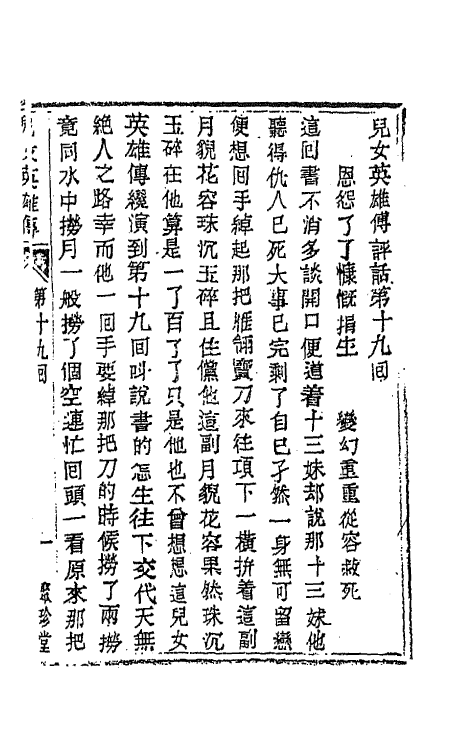 兒女英雄傳評話第十九回
恩怨了了慷慨捐生 變幻重重從容救死
這回書不消多談開口便道着十三妹却說那十三妹他
聽得仇人已死大事已完剩了自己孑然一身無可留戀
便想回手綽起那把雁翎寶刀來往項下一橫拚着這副
月貌花容珠沉玉碎且住儻他這副月貌花容果然珠沉
玉碎在他算是一了百了了只是他也不曾想想這兒女
英雄傳纔演到第十九回叫說書的怎生往下交代天無
絕人之路幸而他一回手要綽那把刀的時候撈了兩撈
竟同水中撈月一般撈了個空連忙回頭一看原來那把
兒女英雄傳 第十九回 一 聚珍堂